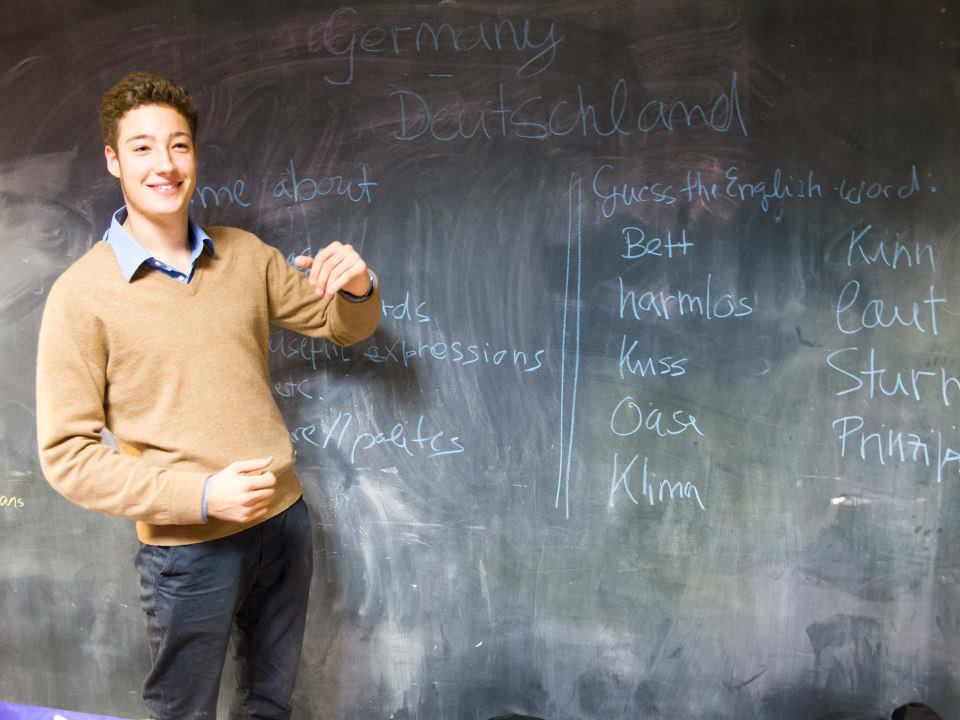 Germany
Deutschland
me about
rds
useful expressions
etc.
re // politcs
Guess the English word:
Bett
harmlos
Kuss
Oase
Klima
Kinn
laut
Sturm
Prinzip
ans